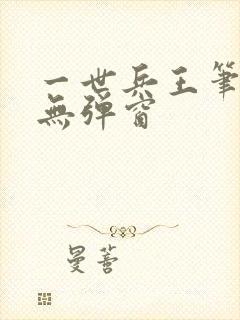 一世兵王筆
無彈窗
曼蕾